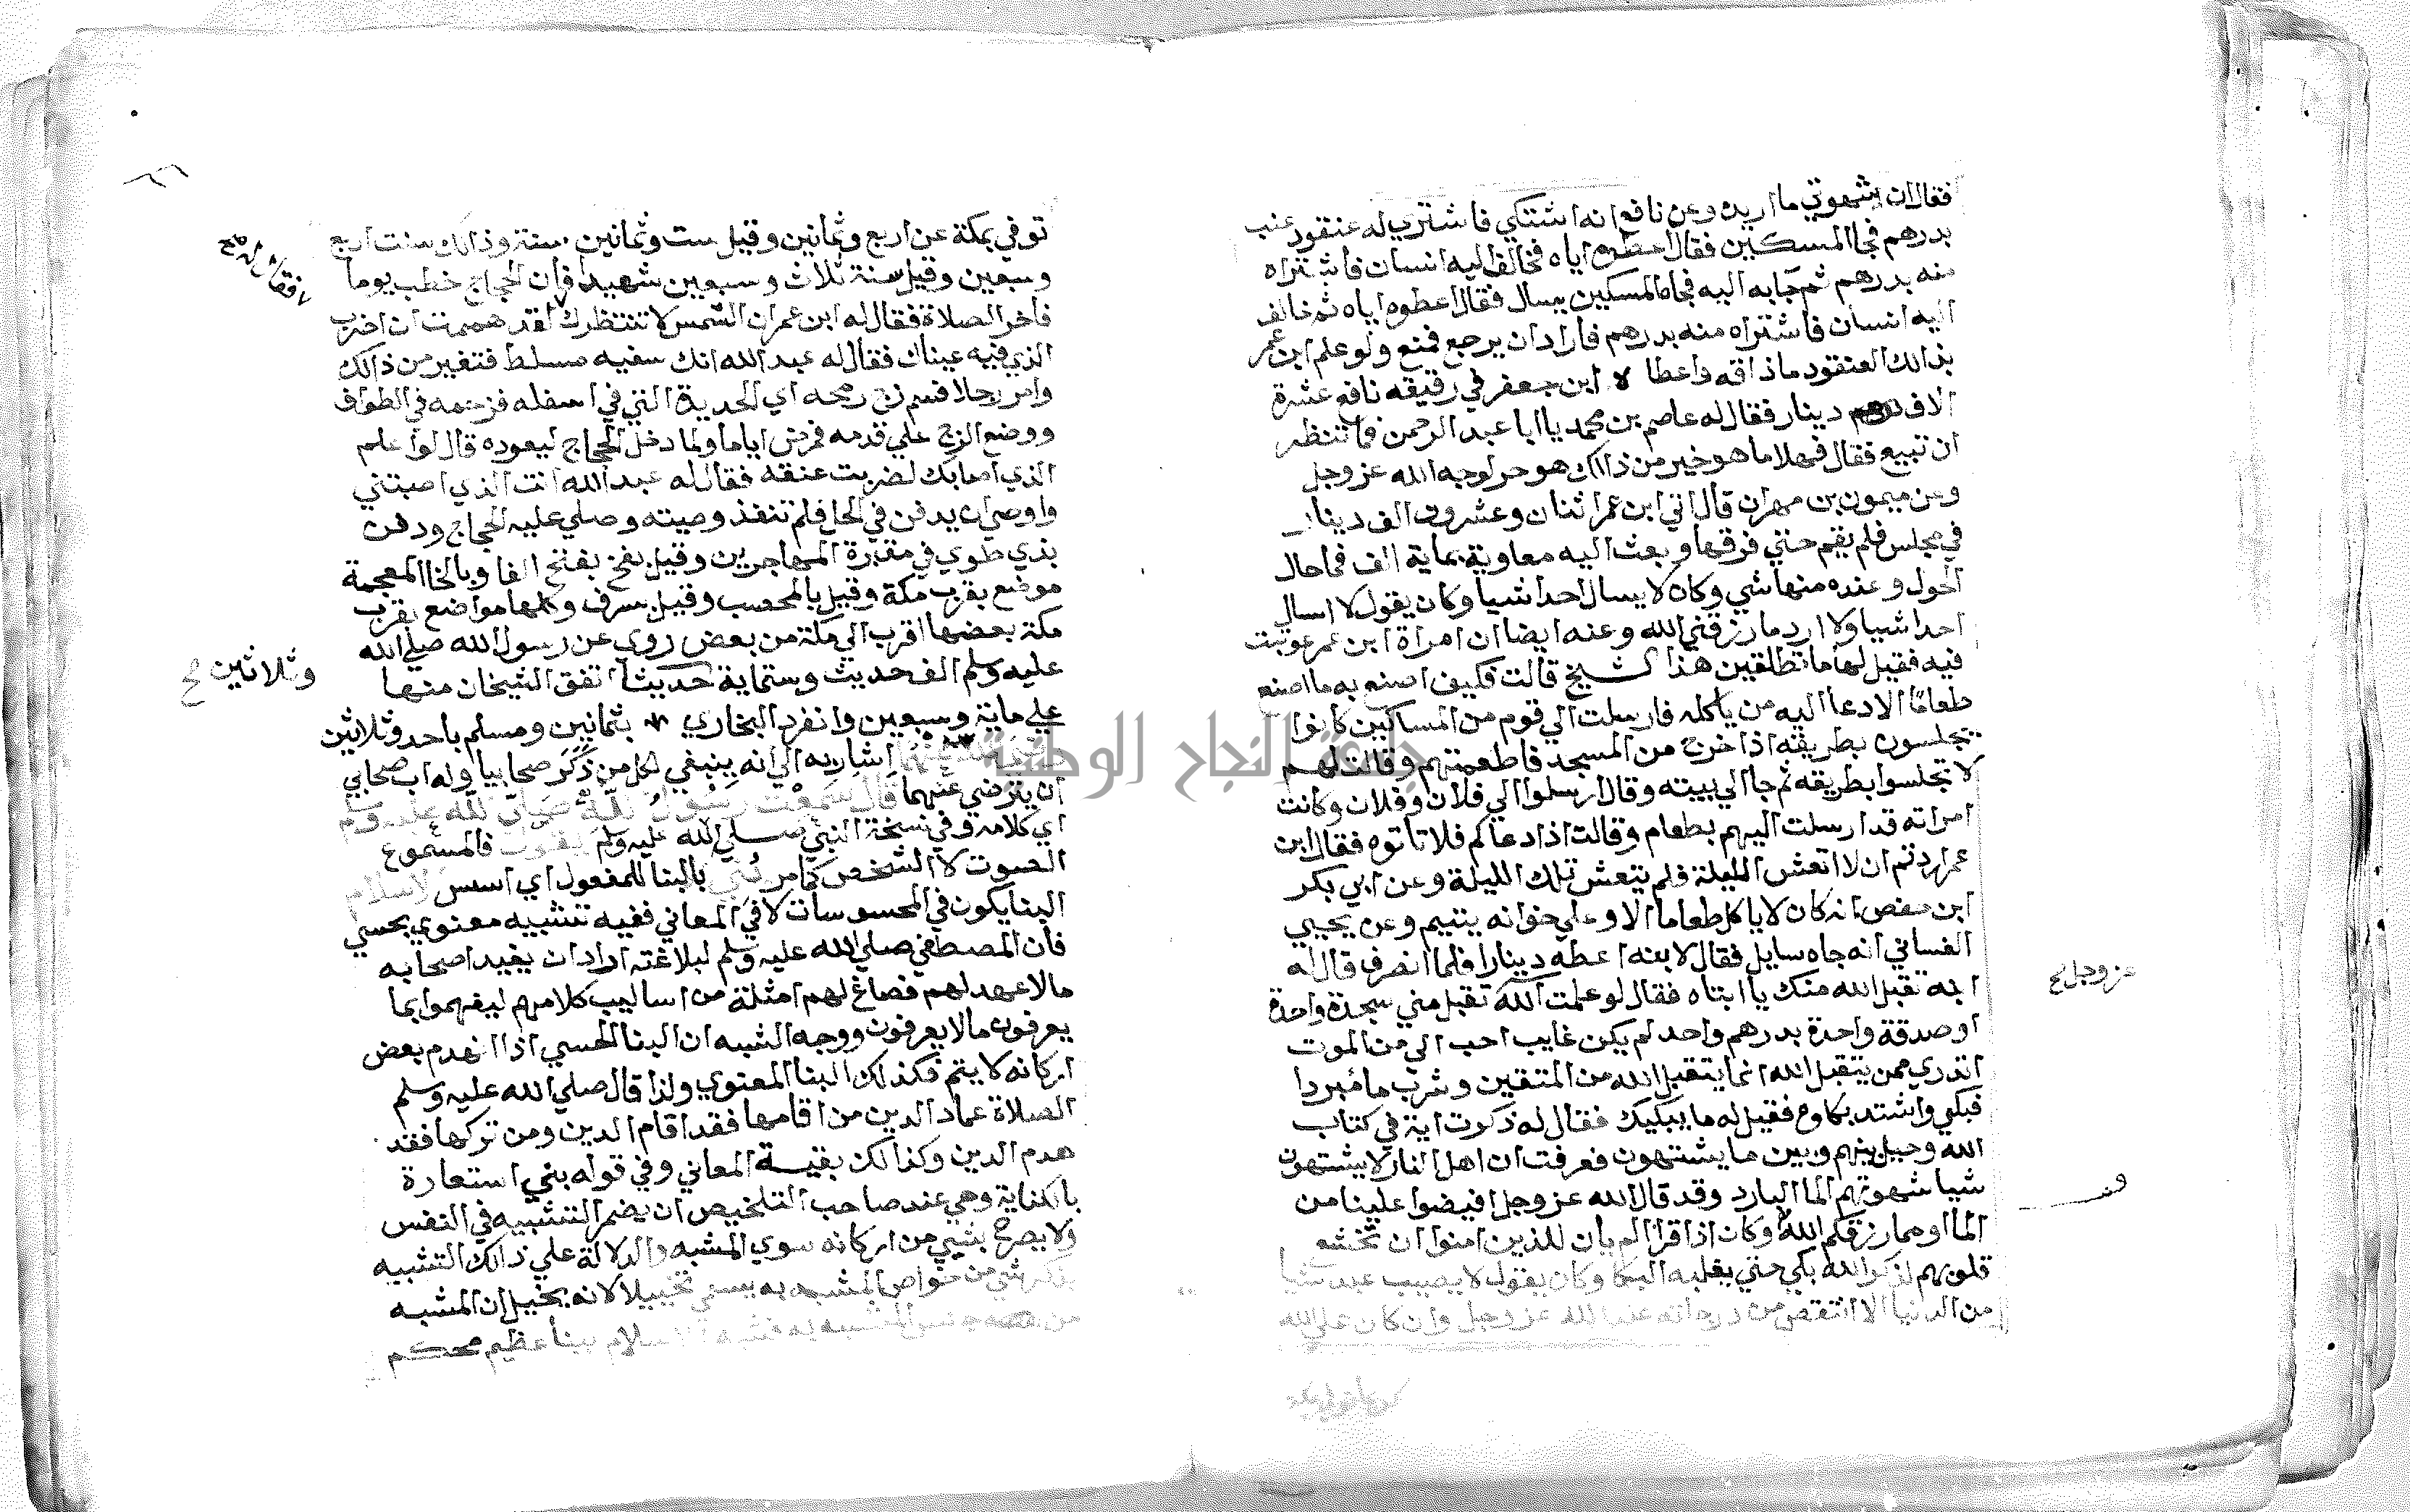 فقال ان شهوتي ما اريده وعن نافع انه اشتكي فاشتري له عنقود عنب
بدرهم فجا المسكين فقال اعطوه اياه فخالف اليه انسان فاشتراه
منه بدرهم ثم جا به اليه فجاه المسكين يسال فقال اعطوه اياه ثم خالف
اليه انسان فاشتراه منه بدرهم فاراد ان يرجع فمنع ولو علم ابن عمر
بذالك العنقود ما ذاقه واعطا له ابن جعفر في رقيقه نافع عشرة
الاف درهم دينار فقال له عاصم بن محمد يا ابا عبد الرحمن فما تنتظر
ان تبيع فقال فهلا ما هو خير من ذالك هو حر لوجه الله عز وجل
وعن ميمون بن مهران قال اتي ابن عمر اثنان وعشرون الف دينار
في مجلس فلم يقم حتي فرقها وبعث اليه معاوية بماية الف فما حال
الحول وعنده منها شي وكان لا يسال احدا شيا وكان يقول لا اسال
احدا شيا ولا ارد ما رزقني الله وعنه ايضا ان امراة ابن عمر عوتبت
فيه فقيل لها ما تطلقين هذا الشيخ قالت فكيف اصنع به ما اصنع
طعاما الا دعا اليه من ياكله فارسلت الي قوم من المساكين كانوا
يجلسون بطريقه اذا خرج من المسجد فاطعمتهم وقالت لهم
لا تجلسوا بطريقه ثم جا الي بيته وقال ارسلوا الي فلان وفلان وكانت
امراته قد ارسلت اليهم بطعام وقالت اذا دعاكم فلا تاتوه فقال ابن
عمر اردتم ان لا اتعش الليلة فلم يتعش تلك الليلة وعن ابي بكر
ابن حفص انه كان لا ياكل طعاما الا وعلي خوانه يتيم وعن يحيي
الغساني انه جاه سايل فقال لابنه اعطه دينارا فلما انصرف قال له
ابنه تقبل الله منك يا ابتاه فقال لو علمت الله تقبل مني سجدة واحدة
او صدقة واحدة بدرهم واحد لم يكن غايب احب الي من الموت
عز وجل صح
اتدري ممن يتقبل الله انما يتقبل الله من المتقين وشرب ما مبردا
فبكي واشتد بكاوه فقيل له ما يبكيك فقال له ذكرت اية في كتاب
الله وحيل بينهم وبين ما يشتهون فعرفت ان اهل النار لا يشتهون
شيا شهوتهم الما البارد وقد قال الله عز وجل افيضوا علينا من
الما او مما رزقكم الله وكان اذا قرا الم يان للذين امنوا ان تخشع
قلوبهم لذكر الله بكي حتي يغلبه البكا وكان يقول لا يصيب عبد شيا
من الدنيا الا انتقص من درجاته عند الله عز وجل وان كان علي الله
توفي بمكة عن اربع وثمانين وقيل ست وثمانين سنة وذالك سنت اربع
وسبعين وقيل سنة ثلاث وسبعين شهيدا فان الحجاج خطب يوما
فاخر الصلاة فقال له ابن عمر ان الشمس لا تنتظرك لقد هممت ان اضرب
الذي فيه عيناك فقال له عبد الله انك سفيه مسلط فتغير من ذالك
وامر رجلا فسم زج رمحه اي الحديدة التي في اسفله فزحمه في الطواف
ووضع الزج علي قدمه فمرض اياما ولما دخل الحجاج ليعوده قال لو اعلم
الذي اصابك لضربت عنقه فقال له عبد الله انت الذي اصبتني
واوصي ان يدفن في الحل فلم تنفذ وصيته وصلي عليه الحجاج ودفن
بذي طوي في مقبرة المهاجرين وقيل بفخ بفتح الفا وبالخا المعجمة
موضع بقرب مكة وقيل بالمحصب وقيل بسرف وكلها مواضع بقرب
مكة بعضها اقرب الي مكة من بعض روي عن رسول الله صلي الله
عليه وسلم الف حديث وستماية حديثا اتفق الشيخان منها
وثلاثين صح
علي ماية وسبعين وانفرد البخاري بثمانين ومسلم باحد وثلاثين
اشار به الي انه ينبغي لكل من ذكر صحابيا وله اب صحابي
ان يترضي عنهما قال سمعت رسول الله صلي الله عليه وسلم
اي كلامه وفي نسخة النبي صلي الله عليه وسلم يقول فالمسموع
الصوت لا الشخص كما مر بني بالبنا للمفعول اي اسس الاسلام
البنا يكون في المحسوسات لا في المعاني ففيه تشبيه معنوي بحسي
فان المصطفي صلي الله عليه وسلم لبلاغته اراد ان يفيد اصحابه
ما لا عهد لهم فصاغ لهم امثلة من اساليب كلامهم ليفهموا بما
يعرفون ما لا يعرفون ووجه الشبه ان البنا الحسي اذا انهدم بعض
اركانه لا يتم فكذلك البنا المعنوي ولذا قال صلي الله عليه وسلم
الصلاة عماد الدين من اقامها فقد اقام الدين ومن تركها فقد
هدم الدين وكذالك بقيـة المعاني وفي قوله بني استعارة
بالكناية وهي عند صاحب التلخيص ان يضمر التشبيه في النفس
ولا يصرح بشي من اركانه سوي المشبه والدلالة علي ذالك التشبيه
بذكر شي من خواص المشبه به يسمي تخييلا لانه يخيل ان المشبه
من جنس المشبه به فشبه الاسلام ببنا عظيم محكم
جامعة النجاح الوطنية